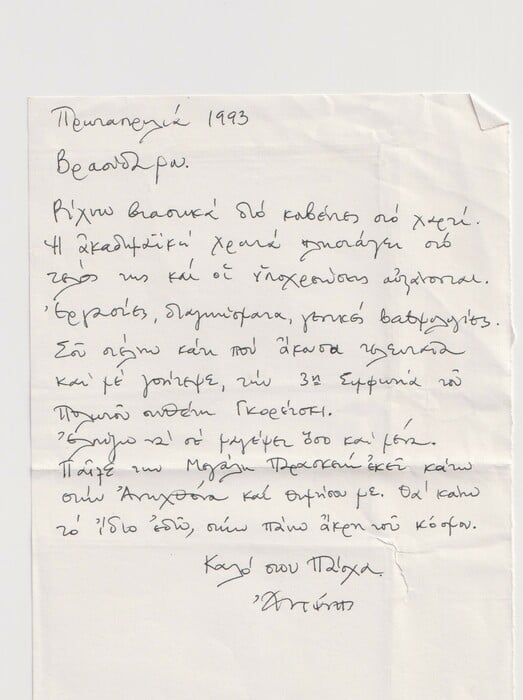 Πρωταπριλιά 1993
Βρασίδα μου.
Ρίχνω βιαστικά δυό κουβέντες στό χαρτί.
Ἡ ἀκαδημαϊκή χρονιά πλησιάζει στό
τέλος της καί οἱ ὑποχρεώσεις αὐξάνονται.
Ἐργασίες, διαγωνίσματα, γενικές βαθμολογίες.
Σοῦ στέλνω κάτι πού ἄκουσα τελευταῖα
καί μέ γοήτεψε, τήν 3η Συμφωνία τοῦ
Πολωνοῦ συνθέτη Γκορέτσκι.
Ἐλπίζω νά σέ μαγέψει ὅσο καί μένα.
Παῖξε την Μεγάλη Παρασκευή ἐκεῖ κάτω
στήν Ἀντιχθόνα καί θυμήσου με. Θά κάνω
τό ἴδιο ἐδῶ, στήν πάνω ἄκρη τοῦ κόσμου.
Καλό σου Πάσχα.
Ἀντώνης